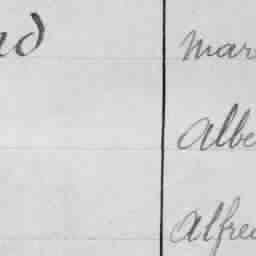 nd mar
Albe
Alfre